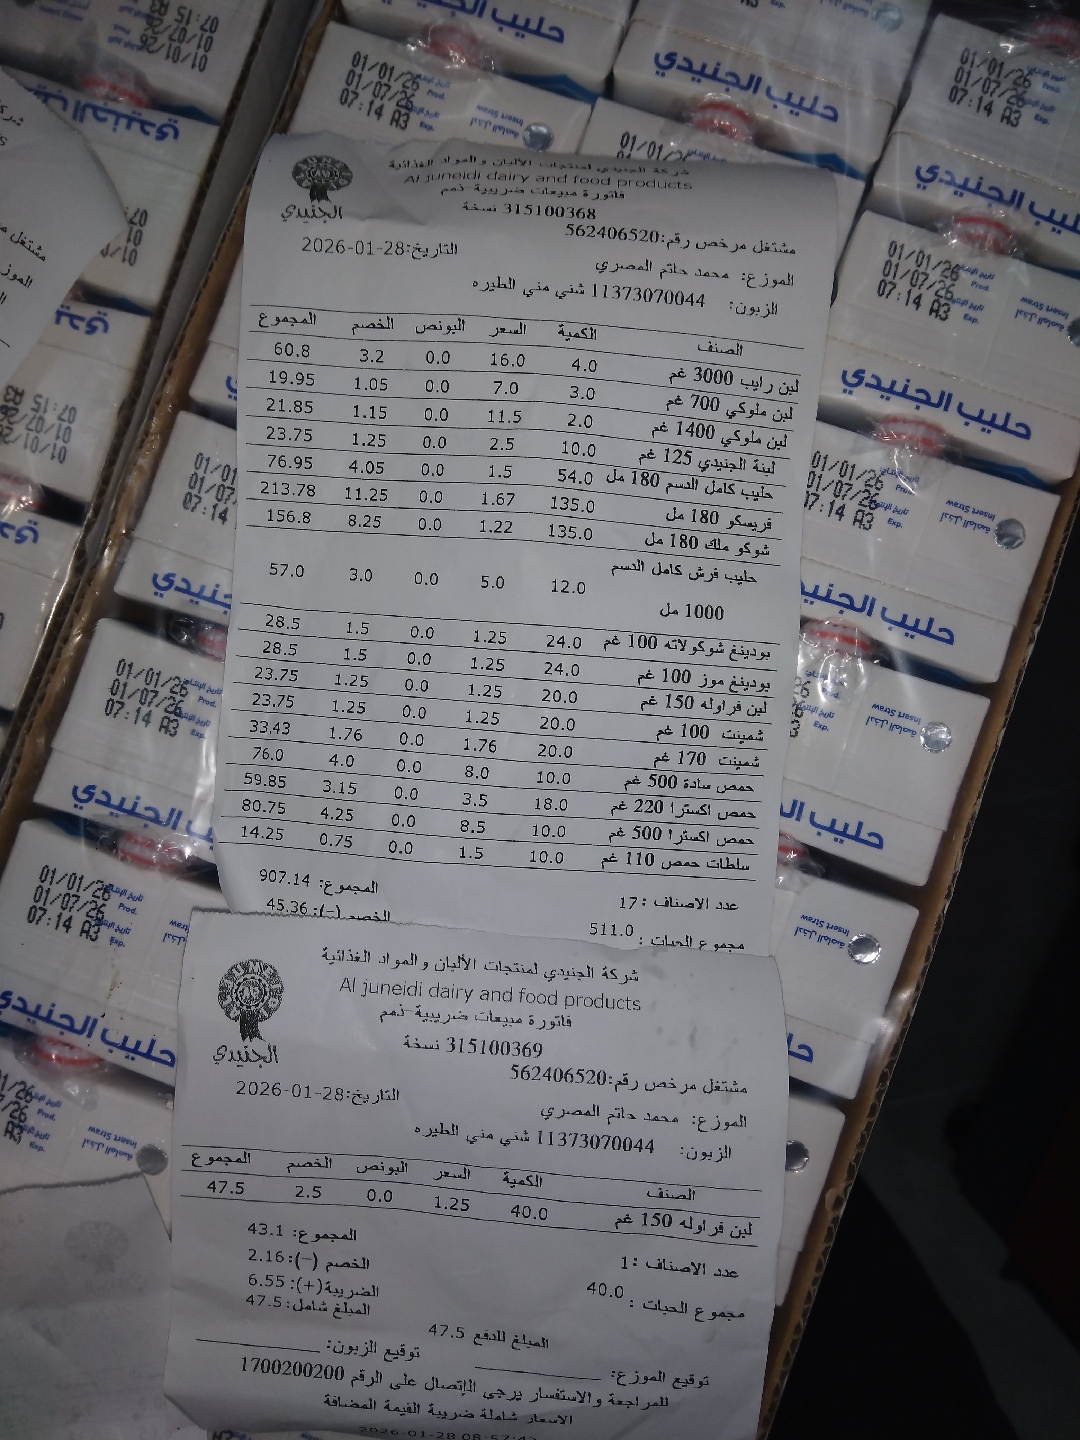 شركة الجنيدي لمنتجات الألبان والمواد الغذائية
Al juneidi dairy and food products
فاتورة مبيعات ضريبية-ذمم
315100368 نسخة
الجنيدي
مشتغل مرخص رقم:562406520
التاريخ:28-01-2026
الموزع: محمد حاتم المصري
الزبون: 11373070044 شني مني الطيره
الصنف الكمية السعر البونص الخصم المجموع
لبن رايب 3000 غم 4.0 16.0 0.0 3.2 60.8
لبن ملوكي 700 غم 3.0 7.0 0.0 1.05 19.95
لبن ملوكي 1400 غم 2.0 11.5 0.0 1.15 21.85
لبنة الجنيدي 125 غم 10.0 2.5 0.0 1.25 23.75
حليب كامل الدسم 180 مل 54.0 1.5 0.0 4.05 76.95
فريسكو 180 مل 135.0 1.67 0.0 11.25 213.78
شوكو ملك 180 مل 135.0 1.22 0.0 8.25 156.8
حليب فرش كامل الدسم
1000 مل 12.0 5.0 0.0 3.0 57.0
بودينغ شوكولاته 100 غم 24.0 1.25 0.0 1.5 28.5
بودينغ موز 100 غم 24.0 1.25 0.0 1.5 28.5
لبن فراوله 150 غم 20.0 1.25 0.0 1.25 23.75
شمينت 100 غم 20.0 1.25 0.0 1.25 23.75
شمينت 170 غم 20.0 1.76 0.0 1.76 33.43
حمص سادة 500 غم 10.0 8.0 0.0 4.0 76.0
حمص اكسترا 220 غم 18.0 3.5 0.0 3.15 59.85
حمص اكسترا 500 غم 10.0 8.5 0.0 4.25 80.75
سلطات حمص 110 غم 10.0 1.5 0.0 0.75 14.25
عدد الاصناف :17 المجموع: 907.14
مجموع الحبات : 511.0 الخصم (-): 45.36
شركة الجنيدي لمنتجات الألبان والمواد الغذائية
Al juneidi dairy and food products
فاتورة مبيعات ضريبية-ذمم
315100369 نسخة
الجنيدي
مشتغل مرخص رقم:562406520
التاريخ:28-01-2026
الموزع: محمد حاتم المصري
الزبون: 11373070044 شني مني الطيره
الصنف الكمية السعر البونص الخصم المجموع
لبن فراوله 150 غم 40.0 1.25 0.0 2.5 47.5
عدد الاصناف :1 المجموع: 43.1
مجموع الحبات : 40.0 الخصم (-): 2.16
الضريبة(+): 6.55
المبلغ شامل: 47.5
المبلغ للدفع 47.5
توقيع الموزع: توقيع الزبون:
للمراجعة والاستفسار يرجى الإتصال على الرقم 1700200200
الاسعار شاملة ضريبة القيمة المضافة
حليب الجنيدي
01/01/26 تاريخ الإنتاج Prod.
01/07/26 Exp.
07:14 A3
أدخل الماصة Insert Straw